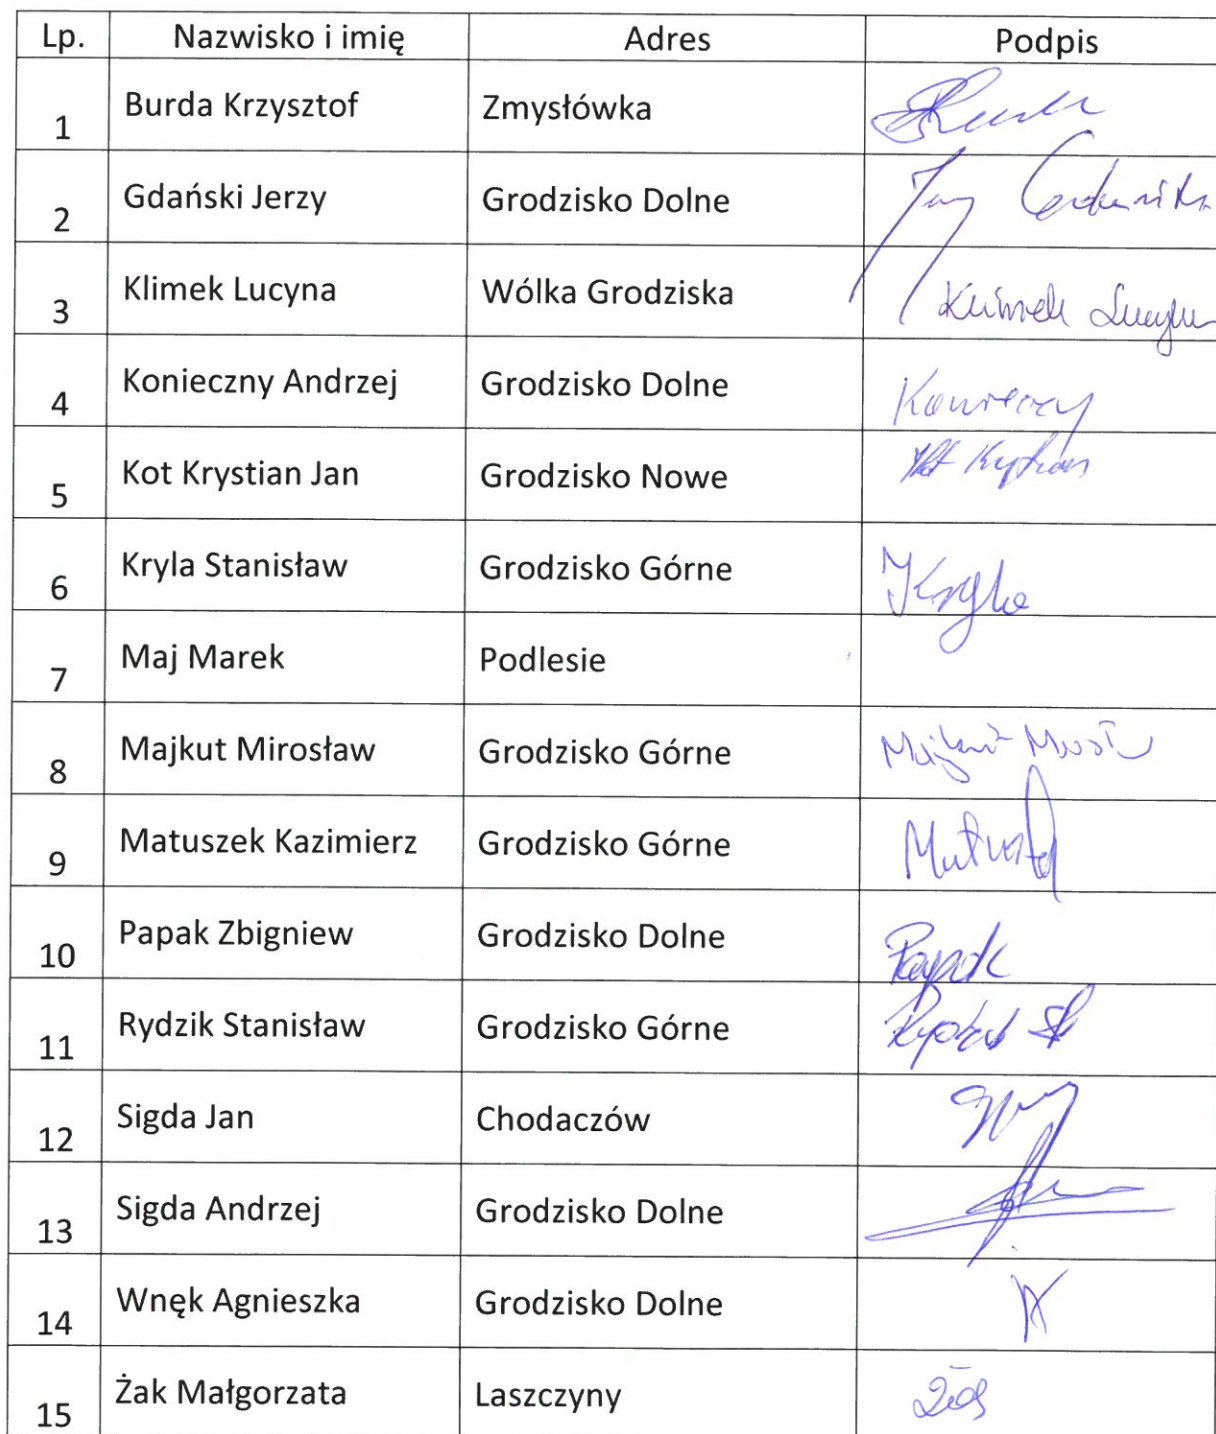 Lp. Nazwisko i imię Adres Podpis
1 Burda Krzysztof Zmysłówka
2 Gdański Jerzy Grodzisko Dolne
3 Klimek Lucyna Wólka Grodziska Klimek Lucyna
4 Konieczny Andrzej Grodzisko Dolne Konieczny
5 Kot Krystian Jan Grodzisko Nowe Kot Krystian
6 Kryla Stanisław Grodzisko Górne Kryla
7 Maj Marek Podlesie
8 Majkut Mirosław Grodzisko Górne Majkut
9 Matuszek Kazimierz Grodzisko Górne
10 Papak Zbigniew Grodzisko Dolne Papak
11 Rydzik Stanisław Grodzisko Górne Rydzik St
12 Sigda Jan Chodaczów
13 Sigda Andrzej Grodzisko Dolne
14 Wnęk Agnieszka Grodzisko Dolne
15 Żak Małgorzata Laszczyny